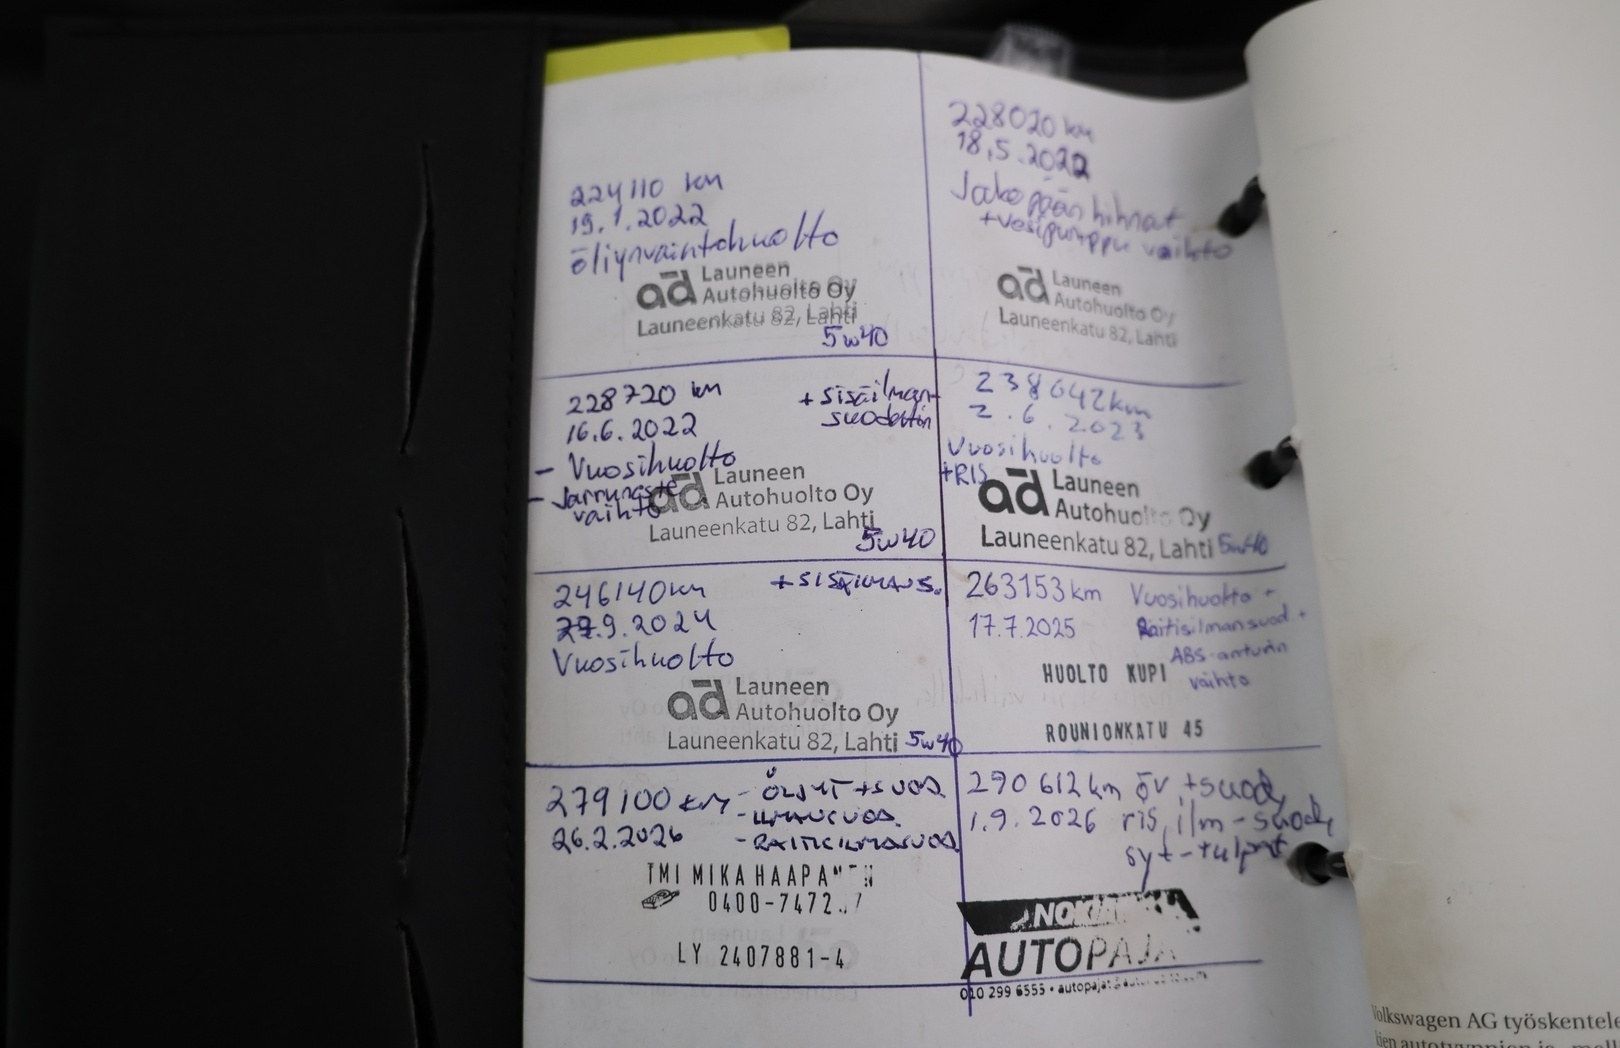 224110 km
19.1.2022
öliynvaihtohuolto
ad Launeen
Autohuolto Oy
Launeenkatu 82, Lahti
5w40
228020 km
18.5.2022
Jakopään hihnat
+vesipumppu vaihto
ad Launeen
Autohuolto Oy
Launeenkatu 82, Lahti
228720 km
16.6.2022
- Vuosihuolto
- Jarruneste
vaihto
+ sisäilman-
suodatin
ad Launeen
Autohuolto Oy
Launeenkatu 82, Lahti
5w40
238642km
2.6.2023
Vuosihuolto
+RIS
ad Launeen
Autohuolto Oy
Launeenkatu 82, Lahti 5w40
246140km
27.9.2024
Vuosihuolto
+SISÄILMANS.
ad Launeen
Autohuolto Oy
Launeenkatu 82, Lahti 5w40
263153km
17.7.2025
Vuosihuolto +
Raitisilmansuod. +
ABS-anturin
vaihto
HUOLTO KUPI
ROUNIONKATU 45
279100 KM
26.2.2026
- ÖLJYT + SUOD.
- ILMANSUOD.
- RAITISILMASUOD.
TMI MIKA HAAPANEN
0400-7472
LY 2407881-4
290612km öv +suod,
1.9.2026 ris, ilm-suod,
syt-tulpat
AUTOPAJA
010 299 6555 •
Volkswagen AG työskentele